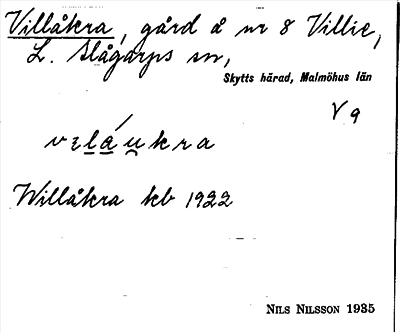 Villåkra, gård å nr 8 Villie,
L. Slågarps sn,
Skytts härad, Malmöhus län
V 9
Willåkra kb 1922
NILS NILSSON 1935